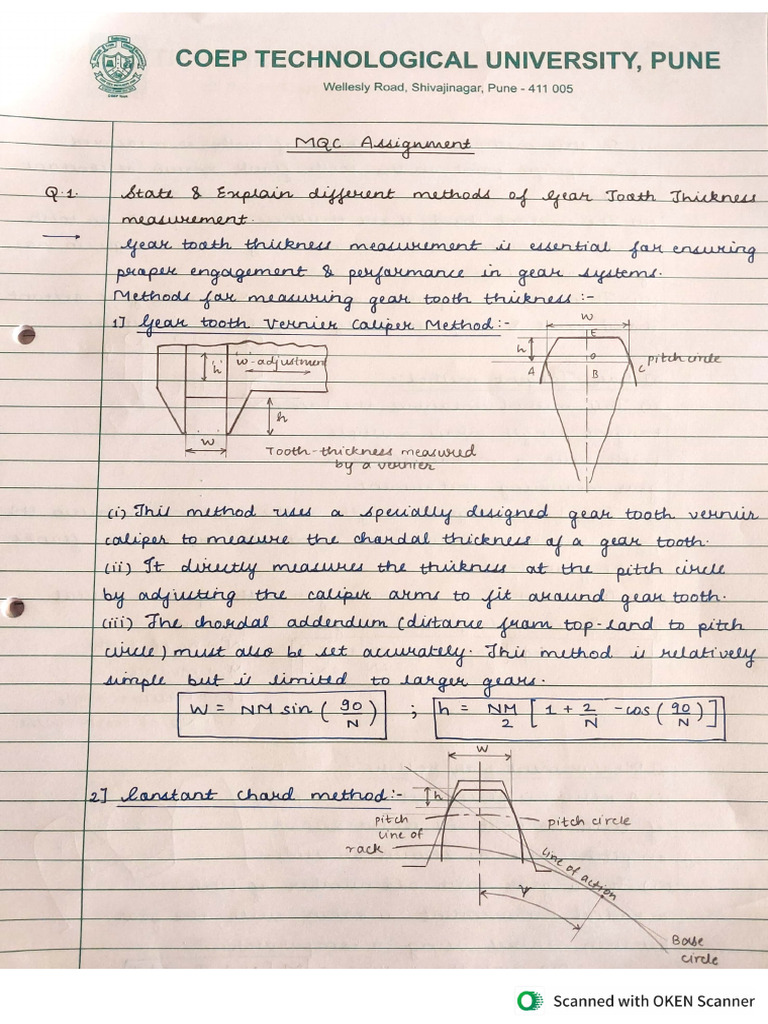 COEP TECHNOLOGICAL UNIVERSITY, PUNE
Wellesly Road, Shivajinagar, Pune - 411 005
COEP Tech
MQC Assignment
Q.1. State & Explain different methods of Gear Tooth Thickness
measurement.
→ Gear tooth thickness measurement is essential for ensuring
proper engagement & performance in gear systems.
Methods for measuring gear tooth thickness :-
1] Gear tooth Vernier Caliper Method :-
h w-adjustment
h
w
Tooth-thickness measured
by a vernier
w
E
h
O
pitch circle
A B C
(i) This method uses a specially designed gear tooth vernier
caliper to measure the chordal thickness of a gear tooth.
(ii) It directly measures the thickness at the pitch circle
by adjusting the caliper arms to fit around gear tooth.
(iii) The chordal addendum (distance from top-land to pitch
circle) must also be set accurately. This method is relatively
simple but is limited to larger gears.
W = NM sin (90/N) ; h = NM/2 [1 + 2/N - cos (90/N)]
2] Constant chord method :-
w
h
pitch line of rack
pitch circle
line of action
Base circle
Scanned with OKEN Scanner